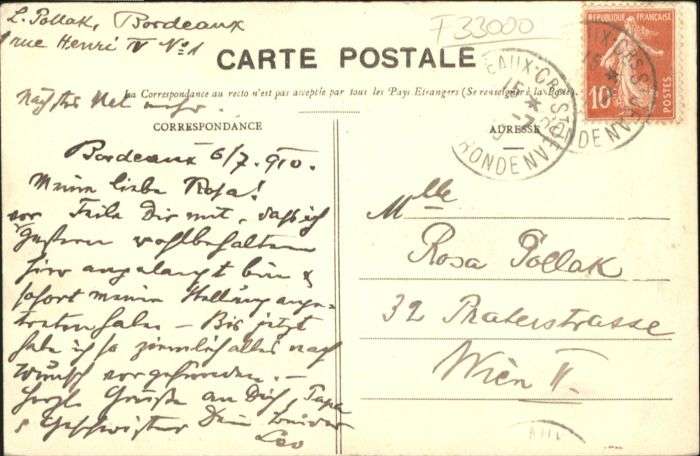 L. Pollak, Bordeaux
1 rue Henri IV No 1
F33000
CARTE POSTALE
La Correspondance au recto n'est pas acceptée par tous les Pays Etrangers (Se renseigner à la Poste).
Nächstes Mal mehr.
CORRESPONDANCE
ADRESSE
Bordeaux 6/7. 910.
Meine liebe Rosa!
Teile Dir mit, dass ich
gestern wohlbehalten
hier angelangt bin &
sofort meine Stellung ange-
treten habe. — Bis jetzt
habe ich so ziemlich alles nach
Wunsch vorgefunden. —
Herzl. Grüsse an Dich, Papa
& Geschwister Dein Bruder
Leo
Mlle
Rosa Pollak
32 Praterstrasse
Wien II.
REPUBLIQUE FRANÇAISE
10
POSTES
GIRONDE